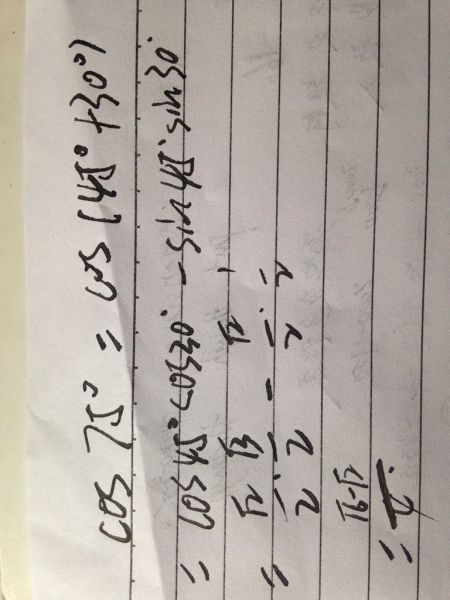 cos 75° = cos(45°+30°)
= cos45°cos30° - sin45°sin30°
= √2/2 · √3/2 - √2/2 · 1/2
= (√6-√2)/4